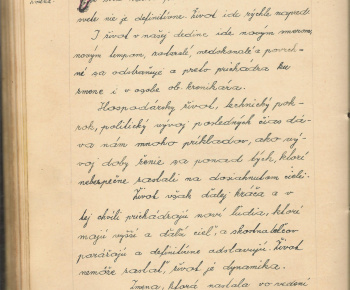 svete nie je definitívne. Život ide rýchle napred.
I život v našej dedine ide novým smerom,
novým tempom, zastaralé, nedokonalé a povrch-
né sa odstraňuje a preto prichádza ku
zmene i v osobe ob. kronikára.
Hospodársky život, technický pok-
rok, politický vývoj posledných čias dá-
va nám mnoho príkladov, ako vý-
voj doby ženie sa ponad tých, ktoré
nebezpečne zastali na dosiahnutom cieli.
Život však ďalej kráča a v
tej chvíli prichádzajú noví ľudia, ktorí
majú vyšší a ďalší cieľ, a
porážajú a definitívne odstavujú. Život
nemôže zastať, život je dynamika.
Zmena, ktorá nastala vo vedení